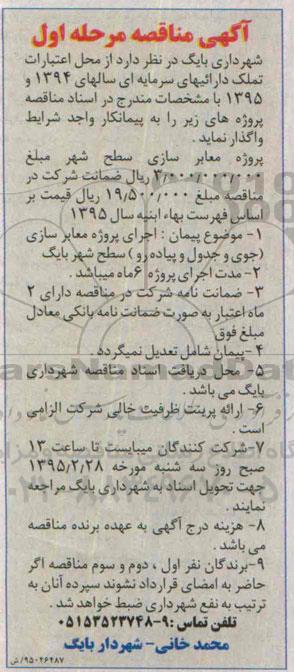 آگهی مناقصه مرحله اول
شهرداری بایگ در نظر دارد از محل اعتبارات
تملک دارائیهای سرمایه ای سالهای ۱۳۹۴ و
۱۳۹۵ با مشخصات مندرج در اسناد مناقصه
پروژه های زیر را به پیمانکار واجد شرایط
واگذار نماید .
پروژه معابر سازی سطح شهر مبلغ
۳/۰۰۰/۰۰۰/۰۰۰ ریال ضمانت شرکت در
مناقصه مبلغ ۱۹/۵۰۰/۰۰۰ ریال قیمت بر
اساس فهرست بهاء ابنیه سال ۱۳۹۵
۱- موضوع پیمان : اجرای پروژه معابر سازی
(جوی و جدول و پیاده رو ) سطح شهر بایگ
۲- مدت اجرای پروژه ۶ماه میباشد .
۳- ضمانت نامه شرکت در مناقصه دارای ۲
ماه اعتبار به صورت ضمانت نامه بانکی معادل
مبلغ فوق
۴ -پیمان شامل تعدیل نمیگردد
۵- محل دریافت اسناد مناقصه شهرداری
بایگ می باشد .
۶- ارائه پرینت ظرفیت خالی شرکت الزامی
است .
۷-شرکت کنندگان میبایست تا ساعت ۱۳
صبح روز سه شنبه مورخه ۱۳۹۵/۲/۲۸
جهت تحویل اسناد به شهرداری بایگ مراجعه
نمایند .
۸- هزینه درج آگهی به عهده برنده مناقصه
می باشد .
۹-برندگان نفر اول ، دوم و سوم مناقصه اگر
حاضر به امضای قرارداد نشوند سپرده آنان به
ترتیب به نفع شهرداری ضبط خواهد شد .
تلفن تماس :۹-۰۵۱۵۳۵۲۳۷۴۸
محمد خانی- شهردار بایگ
۹۵۰۲۶۴۸۷/ش